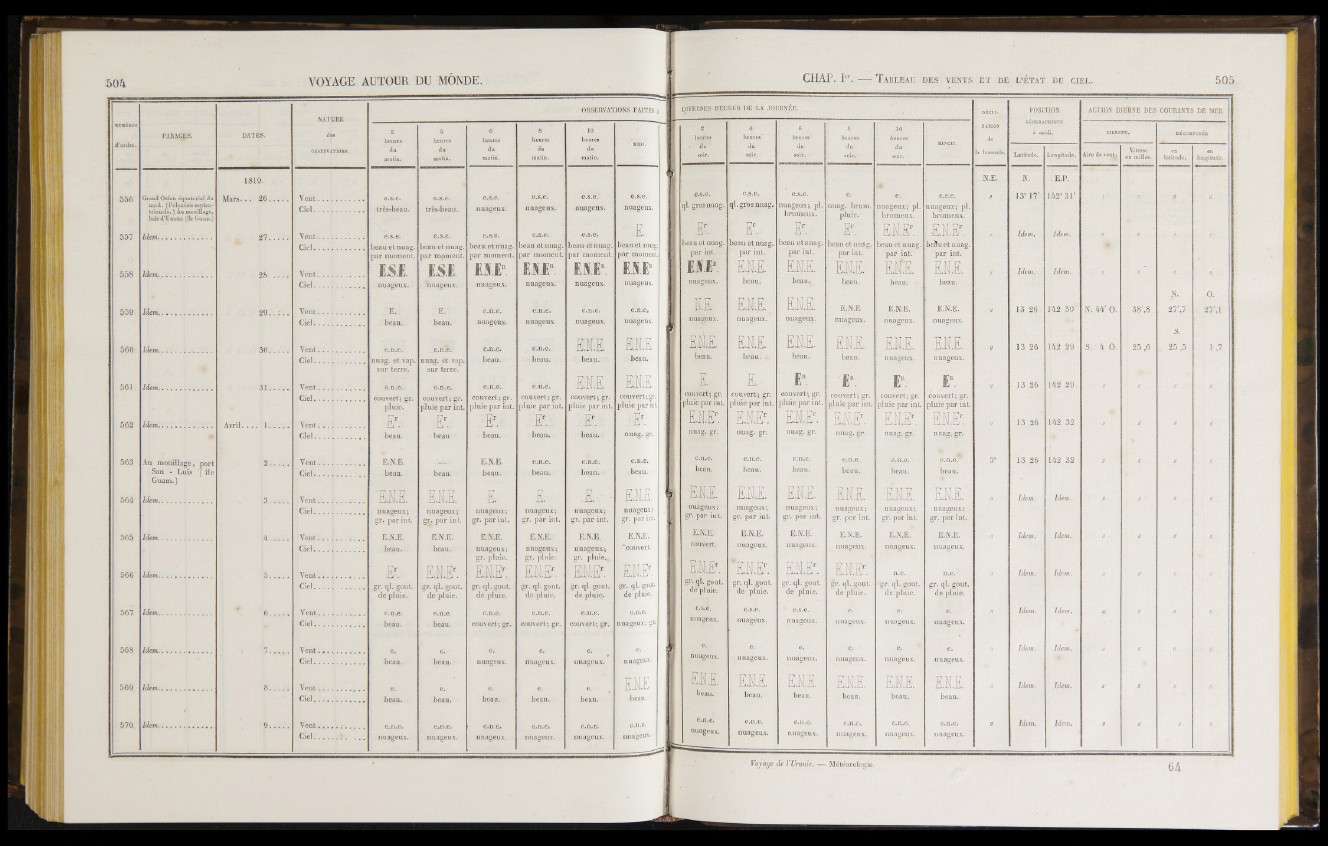 504
VOYAGE AUTOUR DU MONDE.
NUMÉROS d'ordre. | PARAGES. | DATES. | NATURE des OBSERVATIONS. | OBSERVATIONS FAITES
2 heures du matin. | 4 heures du matin. | 6 heures du matin. | 8 heures du matin. | 10 heures du matin. | MIDI.
1819.
556 | Grand Océan équatorial du nord. (Polynésie septentrionale.) Au mouillage, baie d'Umata (île Guam.) | Mars... 26..... | Vent | e.s.e. | e.s.e. | e.s.e. | e.s.e. | e.s.e. | e.s.e.
Ciel | très-beau. | très-beau. | nuageux. | nuageux. | nuageux. | nuageux.
557 | Idem | 27..... | Vent | e.s.e. | e.s.e. | e.s.e. | e.s.e. | e.s.e. | E.
Ciel | beau et nuag. par moment. | beau et nuag. par moment. | beau et nuag. par moment. | beau et nuag. par moment. | beau et nuag. par moment. | beau et nuag. par moment.
558 | Idem | 28..... | Vent | E.S.E. | E.S.E. | E.N.E. | E.N.E. | E.N.E. | E.N.E.
Ciel | nuageux. | nuageux. | nuageux. | nuageux. | nuageux. | nuageux.
559 | Idem | 29..... | Vent | E. | E. | e.n.e. | e.n.e. | e.n.e. | e.n.e.
Ciel | beau. | beau. | nuageux. | nuageux. | nuageux. | nuageux.
560 | Idem | 30..... | Vent | e.n.e. | e.n.e. | e.n.e. | e.n.e. | E.N.E. | E.N.E.
Ciel | nuag. et vap. sur terre. | nuag. et vap. sur terre. | beau. | beau. | beau. | beau.
561 | Idem | 31..... | Vent | e.n.e. | e.n.e. | e.n.e. | e.n.e. | E.N.E. | E.N.E.
Ciel | couvert; gr. pluie. | couvert; gr. pluie par int. | couvert; gr. pluie par int. | couvert; gr. pluie par int. | couvert; gr. pluie par int. | couvert; gr. pluie par int.
562 | Idem | Avril... 1..... | Vent | Er. | Er. | Er. | Er. | Er. | Er.
Ciel | beau. | beau | beau. | beau. | beau. | nuag. gr.
563 | Au mouillage, port San-Luis (île Guam.) | 2..... | Vent | E.N.E. | — | E.N.E. | e.n.e. | e.n.e. | e.n.e.
Ciel | beau. | beau. | beau. | beau. | beau. | beau.
564 | Idem | 3..... | Vent | E.N.E. | E.N.E. | E. | E. | E. | E.N.E.
Ciel | nuageux; gr. par int. | nuageux; gr. par int. | nuageux; gr. par int. | nuageux; gr. par int. | nuageux; gr. par int. | nuageux; gr. par int.
565 | Idem | 4..... | Vent | E.N.E. | E.N.E. | E.N.E. | E.N.E. | E.N.E. | E.N.E.
Ciel | beau. | beau. | nuageux; gr. pluie. | nuageux; gr. pluie. | nuageux; gr. pluie. | couvert.
566 | Idem | 5..... | Vent | Er. | E.N.Er. | E.N.Er. | E.N.Er. | E.N.Er. | E.N.Er.
Ciel | gr. ql. gout. de pluie. | gr. ql. gout. de pluie. | gr. ql. gout. de pluie. | gr. ql. gout. de pluie. | gr. ql. gout. de pluie. | gr. ql. gout. de pluie.
567 | Idem | 6..... | Vent | e.n.e. | e.n.e. | e.n.e. | e.n.e. | e.n.e. | e.n.e.
Ciel | beau. | beau. | couvert; gr. | couvert; gr. | couvert; gr. | nuageux; gr.
568 | Idem | 7..... | Vent | e. | e. | e. | e. | e. | e.
Ciel | beau. | beau. | nuageux. | nuageux. | nuageux. | nuageux.
569 | Idem | 8..... | Vent | e. | e. | e. | e. | e. | E.N.E.
Ciel | beau. | beau. | beau. | beau. | beau. | beau.
570 | Idem | 9..... | Vent | e.n.e. | e.n.e. | e.n.e. | e.n.e. | e.n.e. | e.n.e.
Ciel | nuageux. | nuageux. | nuageux. | nuageux. | nuageux. | nuageux.
CHAP. Ier. — TABLEAU DES VENTS ET DE L'ÉTAT DU CIEL.
505
DIVERSES HEURES DE LA JOURNÉE. | DÉCLINAISON de la boussole. | POSITION GÉOGRAPHIQUE à midi. | ACTION DIURNE DES COURANTS DE MER
2 heures du soir. | 4 heures du soir. | 6 heures du soir. | 8 heures du soir. | 10 heures du soir. | MINUIT. | Latitude. | Longitude. | DIRECTE. | Aire de vent. | Vitesse en milles. | DÉCOMPOSÉE | en latitude. | en longitude.
N.E. | N. | E.P.
e.s.e. | e.s.e. | e.s.e. | e. | e. | e.n.e. | 13° 17' | 142° 31'
ql. gros nuag. | ql. gros nuag. | nuageux; pl. brumeux. | nuag. brum. pluie. | nuageux; pl. brumeux. | nuageux; pl. brumeux.
Er. | Er. | Er. | Er. | E.N.Er. | E.N.Er. | Idem. | Idem.
beau et nuag. par int. | beau et nuag. par int. | beau et nuag. par int. | beau et nuag. par int. | beau et nuag. par int. | beau et nuag. par int.
E.N.E. | E.N.E. | E.N.E. | E.N.E. | E.N.E. | E.N.E. | Idem. | Idem.
nuageux. | beau. | beau. | beau. | beau. | beau.
N. | O.
N.E. | E.N.E. | E.N.E. | E.N.E. | E.N.E. | E.N.E. | 13 26 | 142 30 | N. 44° O. | 38',8 | 27',7 | 27',1
nuageux. | nuageux. | nuageux. | nuageux. | nuageux. | nuageux.
S.
E.N.E. | E.N.E. | E.N.E. | E.N.E. | E.N.E. | E.N.E. | 13 26 | 142 29 | S. 4 O. | 25,6 | 25,5 | 1,7
beau. | beau. | beau. | beau. | nuageux. | nuageux.
E. | E. | E. | E. | E. | E. | 13 26 | 142 29
couvert; gr. pluie par int. | couvert; gr. pluie par int. | couvert; gr. pluie par int. | couvert; gr. pluie par int. | couvert; gr. pluie par int. | couvert; gr. pluie par int.
E.N.Er. | E.N.Er. | E.N.Er. | E.N.Er. | E.N.Er. | E.N.Er. | 13 26 | 142 32
nuag. gr. | nuag. gr. | nuag. gr. | nuag. gr. | nuag. gr. | nuag. gr.
e.n.e. | e.n.e. | e.n.e. | e.n.e. | e.n.e. | e.n.e. | 5° | 13 26 | 142 32
beau. | beau. | beau. | beau. | beau. | beau.
E.N.E. | E.N.E. | E.N.E. | E.N.E. | E.N.E. | E.N.E. | Idem. | Idem.
nuageux; gr. par int. | nuageux. gr. par int. | nuageux; gr. par int. | nuageux; gr. par int. | nuageux; gr. par int. | nuageux; gr. par int.
E.N.E. | E.N.E. | E.N.E. | E.N.E. | E.N.E. | E.N.E. | Idem. | Idem.
couvert. | nuageux. | nuageux. | nuageux. | nuageux. | nuageux.
E.N.Er. | E.N.Er. | E.N.Er. | E.N.Er. | n.e. | n.e. | Idem. | Idem.
gr. ql. gout. de pluie. | gr. ql. gout. de pluie. | gr. ql. gout. de pluie. | gr. ql. gout. de pluie. | gr. ql. gout. de pluie. | gr. ql. gout. de pluie.
e.s.e. | e.s.e. | e.s.e. | e. | e. | e. | Idem. | Idem.
nuageux. | nuageux. | nuageux. | nuageux. | nuageux. | nuageux.
e. | e. | e. | e. | e. | e. | Idem. | Idem.
nuageux. | nuageux. | nuageux. | nuageux. | nuageux. | nuageux.
E.N.E. | E.N.E. | E.N.E. | E.N.E. | E.N.E. | E.N.E. | Idem. | Idem.
beau. | beau. | beau. | beau. | beau. | beau.
e.n.e. | e.n.e. | e.n.e. | e.n.e. | e.n.e. | e.n.e. | Idem. | Idem.
nuageux. | nuageux. | nuageux. | nuageux. | nuageux. | nuageux.
Voyage de l'Uranie. — Météorologie.
64